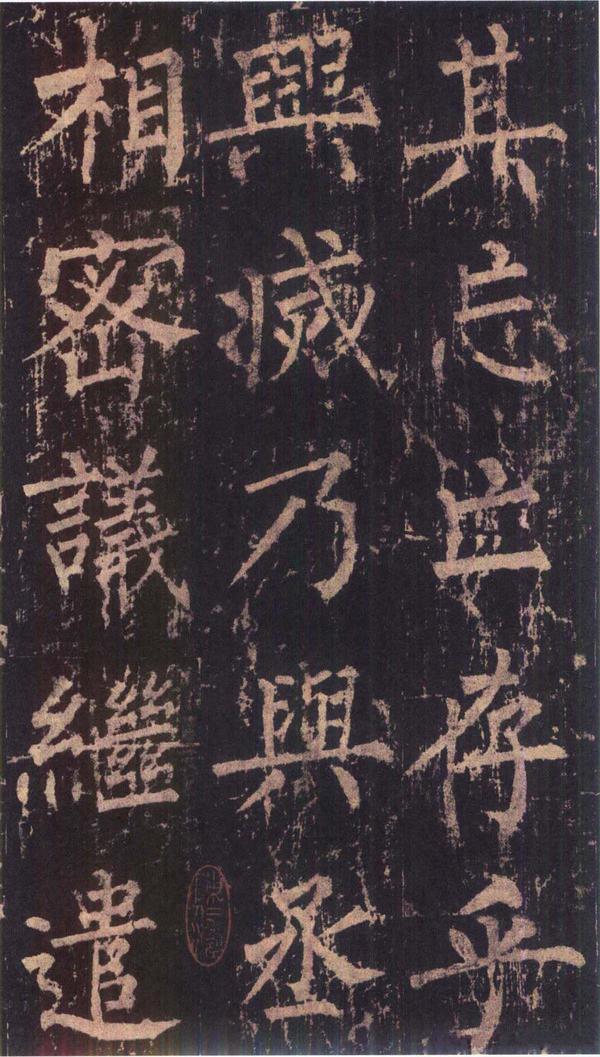 其忘亡存乎
興滅乃與丞
相密議繼遣